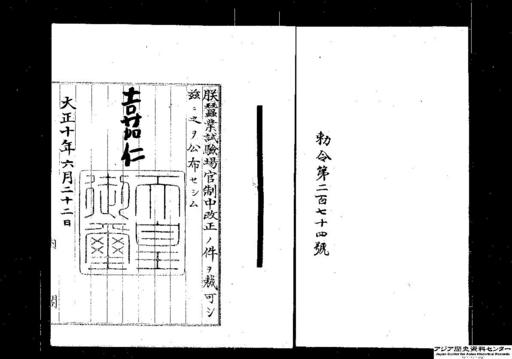 勅令第二百七十四號
朕蠶業試驗場官制中改正ノ件ヲ裁可シ
茲ニ之ヲ公布セシム
嘉仁
天皇御璽
大正十年六月二十二日
内閣
アジア歴史資料センター
Japan Center for Asian Historical Records